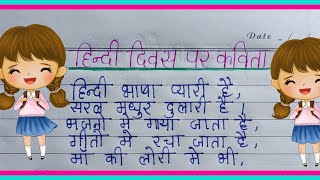 Date -
हिन्दी दिवस पर कविता
हिन्दी भाषा प्यारी है,
सरल मधुर दुलारी है।
भजनों में गाया जाता है,
गीतों में रचा जाता है,
माँ की लोरी में भी,